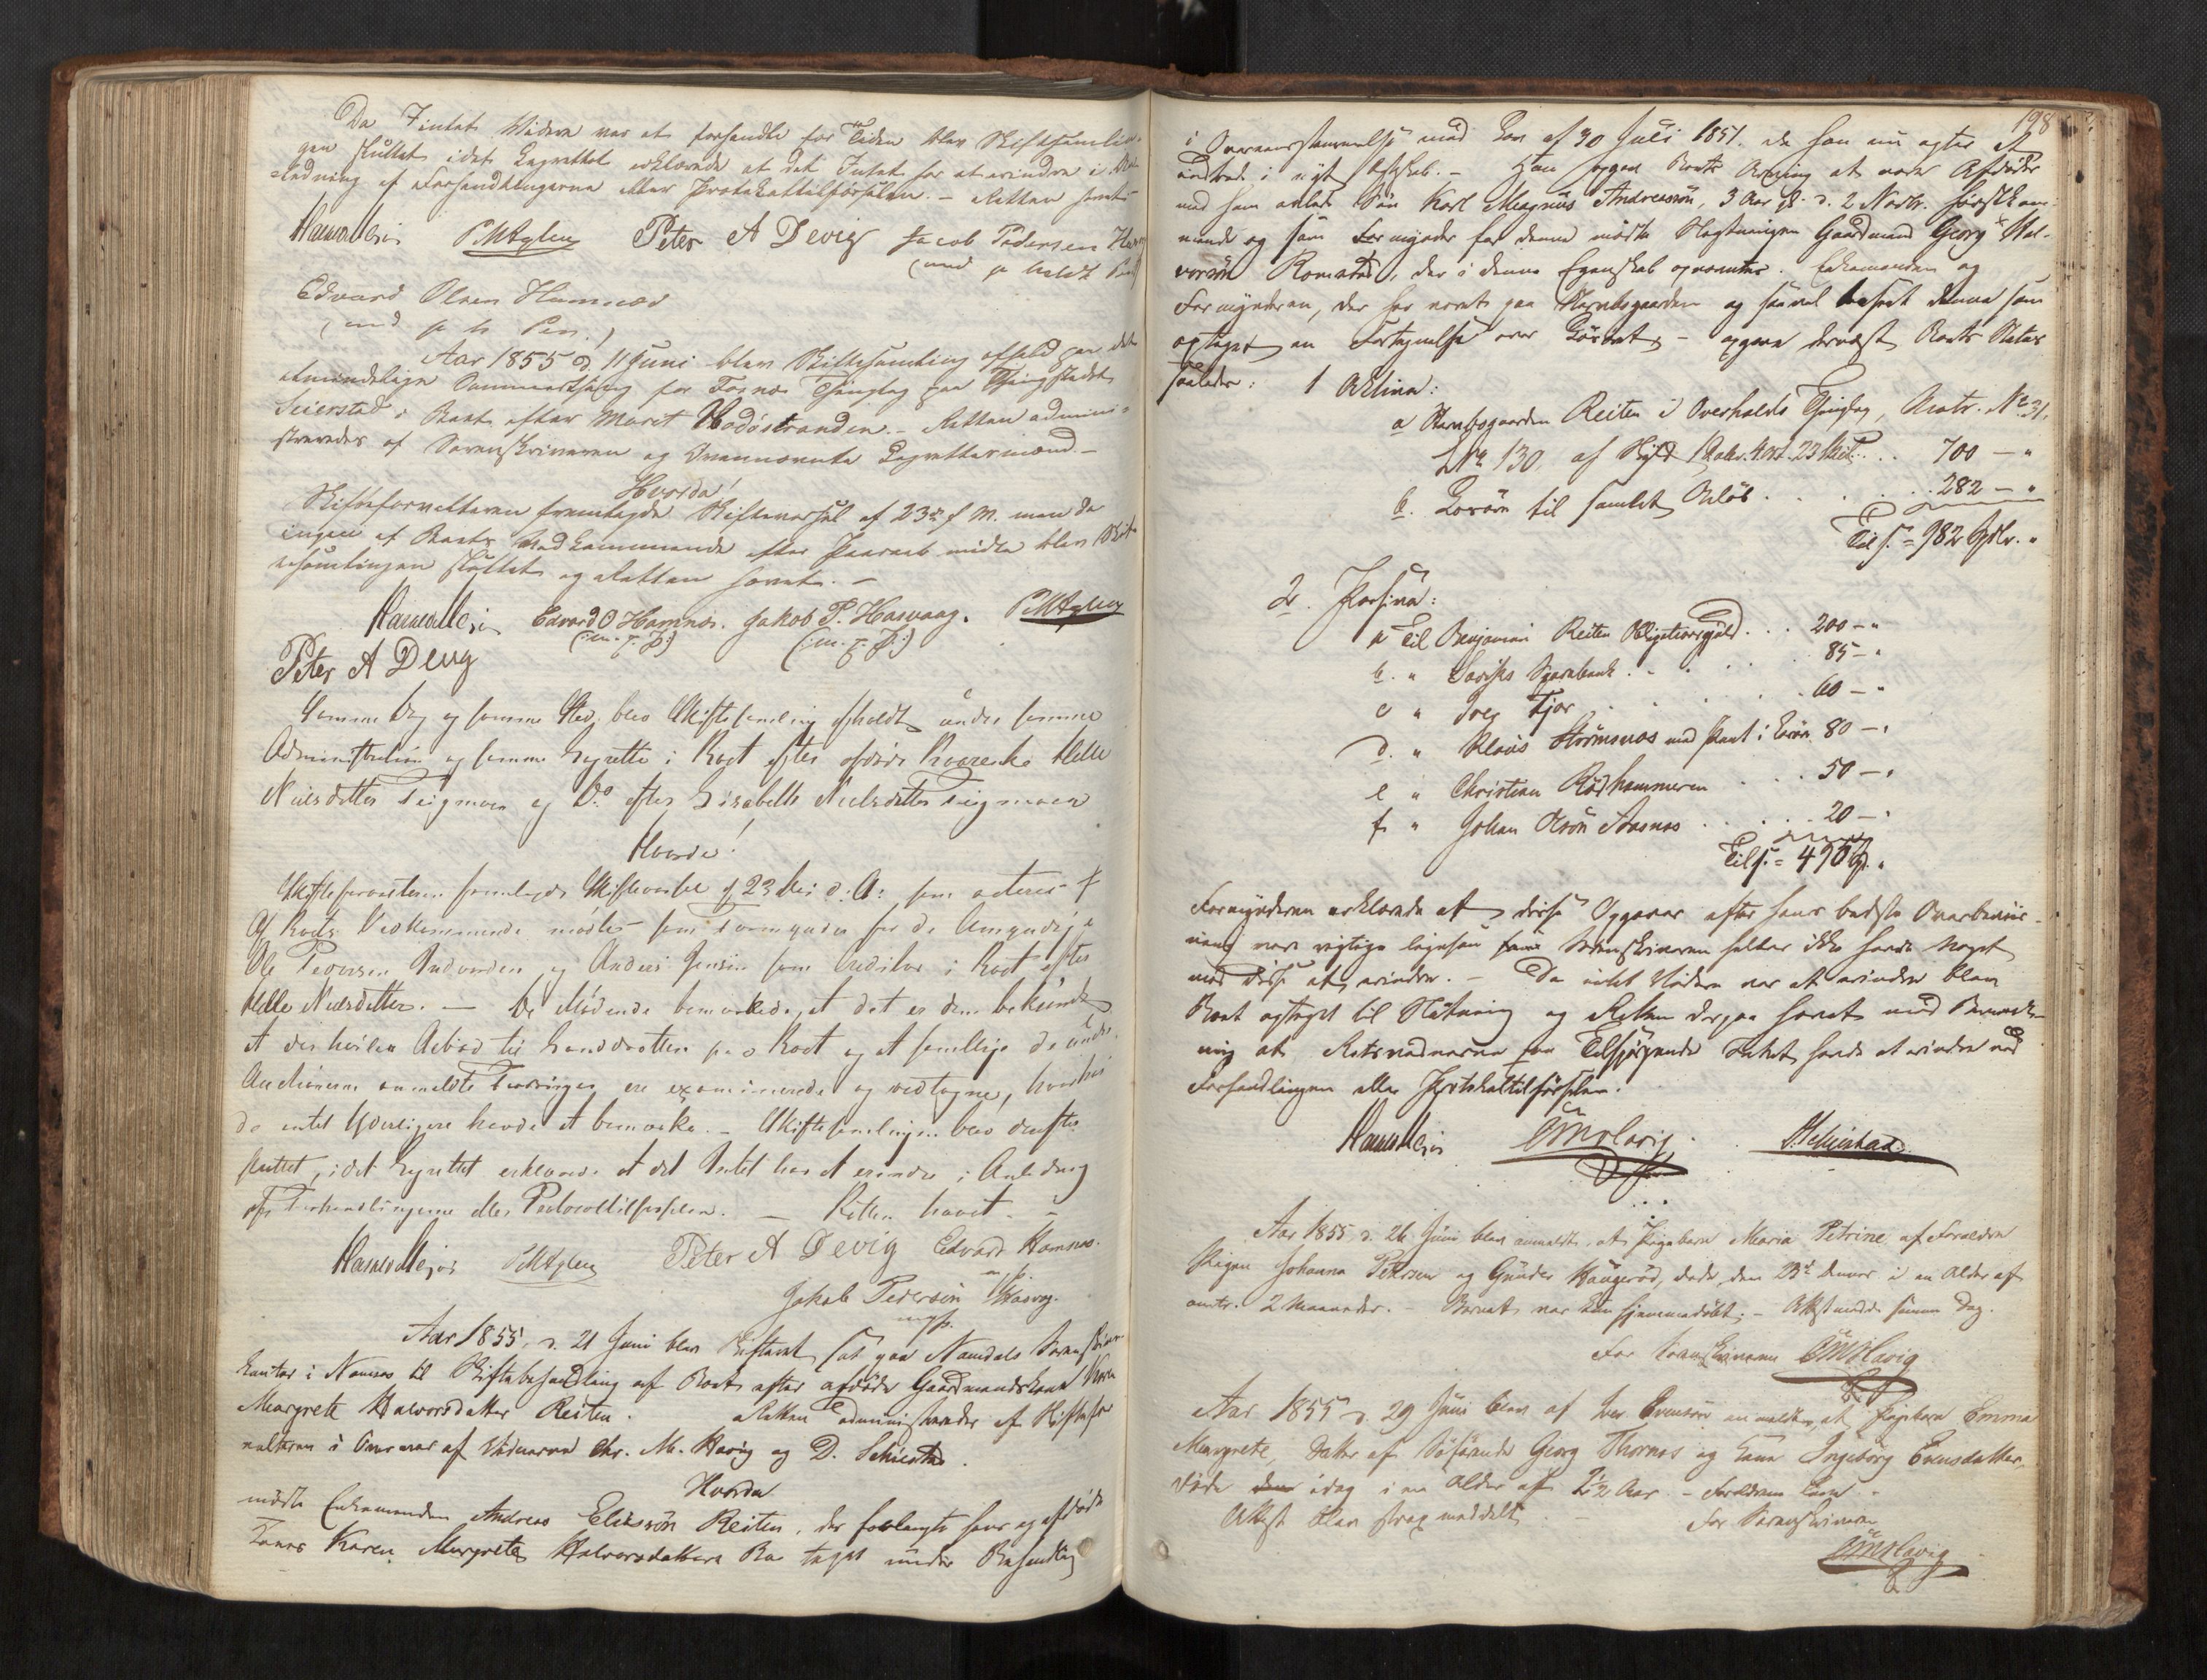 Da Intet Videre var at forhandle for Tiden blev Skiftesamlin-
gen sluttet idet Lagrettet erklærede at det Intet har at erindre i An-
ledning af Forhandlingerne eller Protokoltilførselen. - Retten hævet
Peter A Devig Jacob Pedersen
Edvard Olsen Hamnæs
Aar 1855 d. 11 Juni blev Skiftesamling afholdt paa det
almindelige Sommerthing for Fosnæs Thinglag paa Thingstedet
Seierstad i Boet efter Marit Hadøstranden. - Retten admini-
streredes af Sorenskriveren og Ovennævnte Lagrettesmænd. -
Hvorda!
Skifteforvalteren fremlagde Skiftevarsel af 23de f. M. men da
ingen af Boets Vedkommende efter Paaraab mødte blev Skif-
tesamlingen sluttet og Retten hævet. -
Edvard O Hamnæs. Jakob P. Hasvaag.
(:m. p. P:) (:m. p. P:)
Peter A Devig
Samme Dag og samme Sted blev Skiftesamling afholdt under samme
Administration og samme Lagrette i Boet efter afdøde Helle
Nielsdatter Teigmoen og Do efter Lisabeth Nielsdatter Teigmoen
Hvorda!
Skifteforvalteren fremlagde Skiftevarsel af 23 Mai d. A: som acteres
Af Boets Vedkommende mødte som Formynder for de Umyndige
Ole Pedersen og Anders Jensen som Creditor i Boet efter
Helle Nielsdatter. - De Mødende bemærkede, at det er dem bekjendt
at der hviler paa Boet og at samtlige de under
Auctionen anmeldte Fordringer ere examinerede og vedtagne, hvorhos
de intet Yderligere havde at bemærke. - Skiftesamlingen blev derefter
sluttet, idet Lagrettet erklærede at det Intet har at erindre i Anledning
af Forhandlingerne eller Protocoltilførselen. - Retten hævet. -
Peter A Devig Edvard Hamnæs.
Jakob Pedersen Hasvog.
Aar 1855, d. 21 Juni blev Skifteret sat paa Namdals Sorenskriver
Kontor i Namsos til Skiftebehandling af Boet efter afdøde Gaardmandskone Karen
Margrete Halvorsdatter Reiten. Retten administreredes af Skiftefor-
valteren i Overvær af Vidnerne Chr. M. Havig og D. Schiestad.
Hvorda
mødte Enkemanden Andreas Eliasøn Reiten, der forlangte hans og afdøde
Kones Karen Margrete Halvorsdatters Bo taget under Behandling
198
i Overensstemmelse med Lov af 30 Juli 1851. da han nu agter at
indtræde i nyt Ægteskab. - Han opgav Boets Arving at være Afdødes
med ham avlede Søn Karl Magnus Andreassøn, 3 Aar gl. d. 2 Novbr. førstkom-
mende og som Formynder for denne mødte Slægtningen Gaardmand Georg Hal-
vorsøn Romstad, der i denne Egenskab opnævntes. Enkemanden og
Formynderen, der har været paa Stervbogaarden og saavel beseet denne som
optaget en Fortegnelse over Løsøret, - opgave dernæst Boets Status
saaledes: 1 Activa:
a Stervbogaarden Reiten i Overhalds Thinglag, Matr. No 31,
L No 130, af Skyld 1 Daler. 4 ort. 23 Skil. . . 700 - "
b. Løsøre til samlet Beløb . . . . . 282 - "
Tils. = 982 Spdlr. "
2. Passiva:
a Til Benjamin Reiten Obligationsgjæld . . . 200 - "
b. " Sparebank . . . . 85 - "
c " Fjær . . . . 60 - "
d. " Klaus Strømsnæs med Pant i Løsøre 80 - "
e " Christian Rødhammeren . . . 50 - "
f. " Johan . . . . 20 - "
Tils. = 495 Sp. "
Formynderen erklærede at disse Opgaver efter hans bedste Overbeviis-
ning vare rigtige ligesom Sorenskriveren heller ikke havde Noget
mod disse at erindre. - Da intet Videre var at erindre blev
Boet optaget til Slutning og Retten derpaa hævet med Bemærk-
ning at Retsvidnerne paa Tilspørgende Intet havde at erindre ved
Forhandlingen eller Protokoltilførselen.
CMHavig. DSchiestad.
Aar 1855 d. 26 Juni blev anmeldt, at Pigebarn Maria Petrine af Forældre
Pigen Johanna Petersen og Gunder Haugerød, døde den 23de dennes i en Alder af
omtr. 2 Maaneder. - Barnet var kun hjemmedøbt. - Attest meddelt samme Dag.
For Sorenskriveren CMHavig
Aar 1855 d. 29 Juni blev af Iver Evensøn anmeldt, at Pigebarn Emma
Margrete, Datter af Georg Thornæs og Kone Ingeborg Evensdatter,
døde idag i en Alder af 2 1/2 Aar. -
Attest blev strax meddelt. For Sorenskriveren
CMHavig